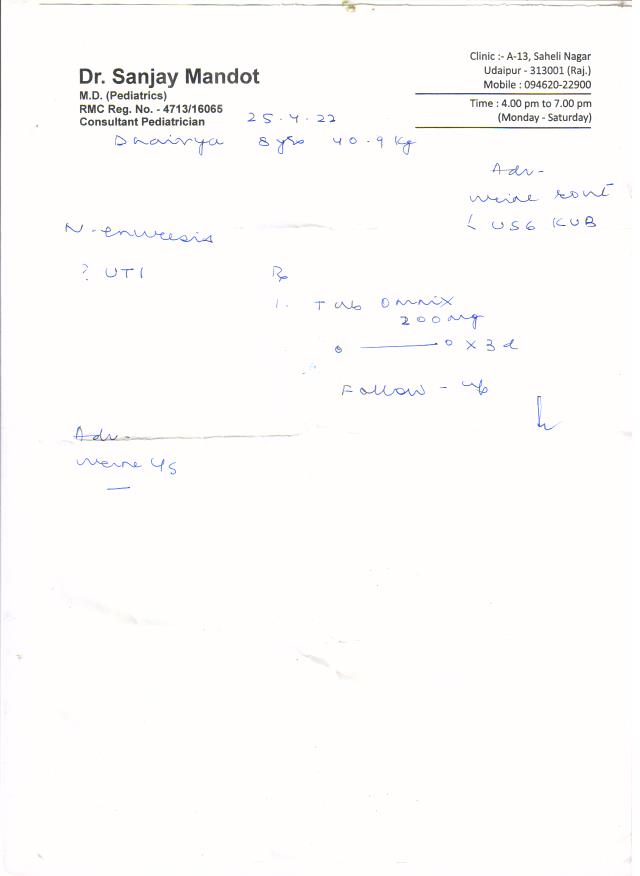 Clinic :- A-13, Saheli Nagar
Udaipur - 313001 (Raj.)
Mobile : 094620-22900
Time : 4.00 pm to 7.00 pm
(Monday - Saturday)
Dr. Sanjay Mandot
M.D. (Pediatrics)
RMC Reg. No. - 4713/16065
Consultant Pediatrician
25.4.22
Dhairya 8 yrs 40.9 kg
Adv-
urine rout
USG KUB
N-enuresis
? UTI
Rx
1. Tab Omnix
200mg
0 — 0 x 3 d
Follow-up
Adv-
urine